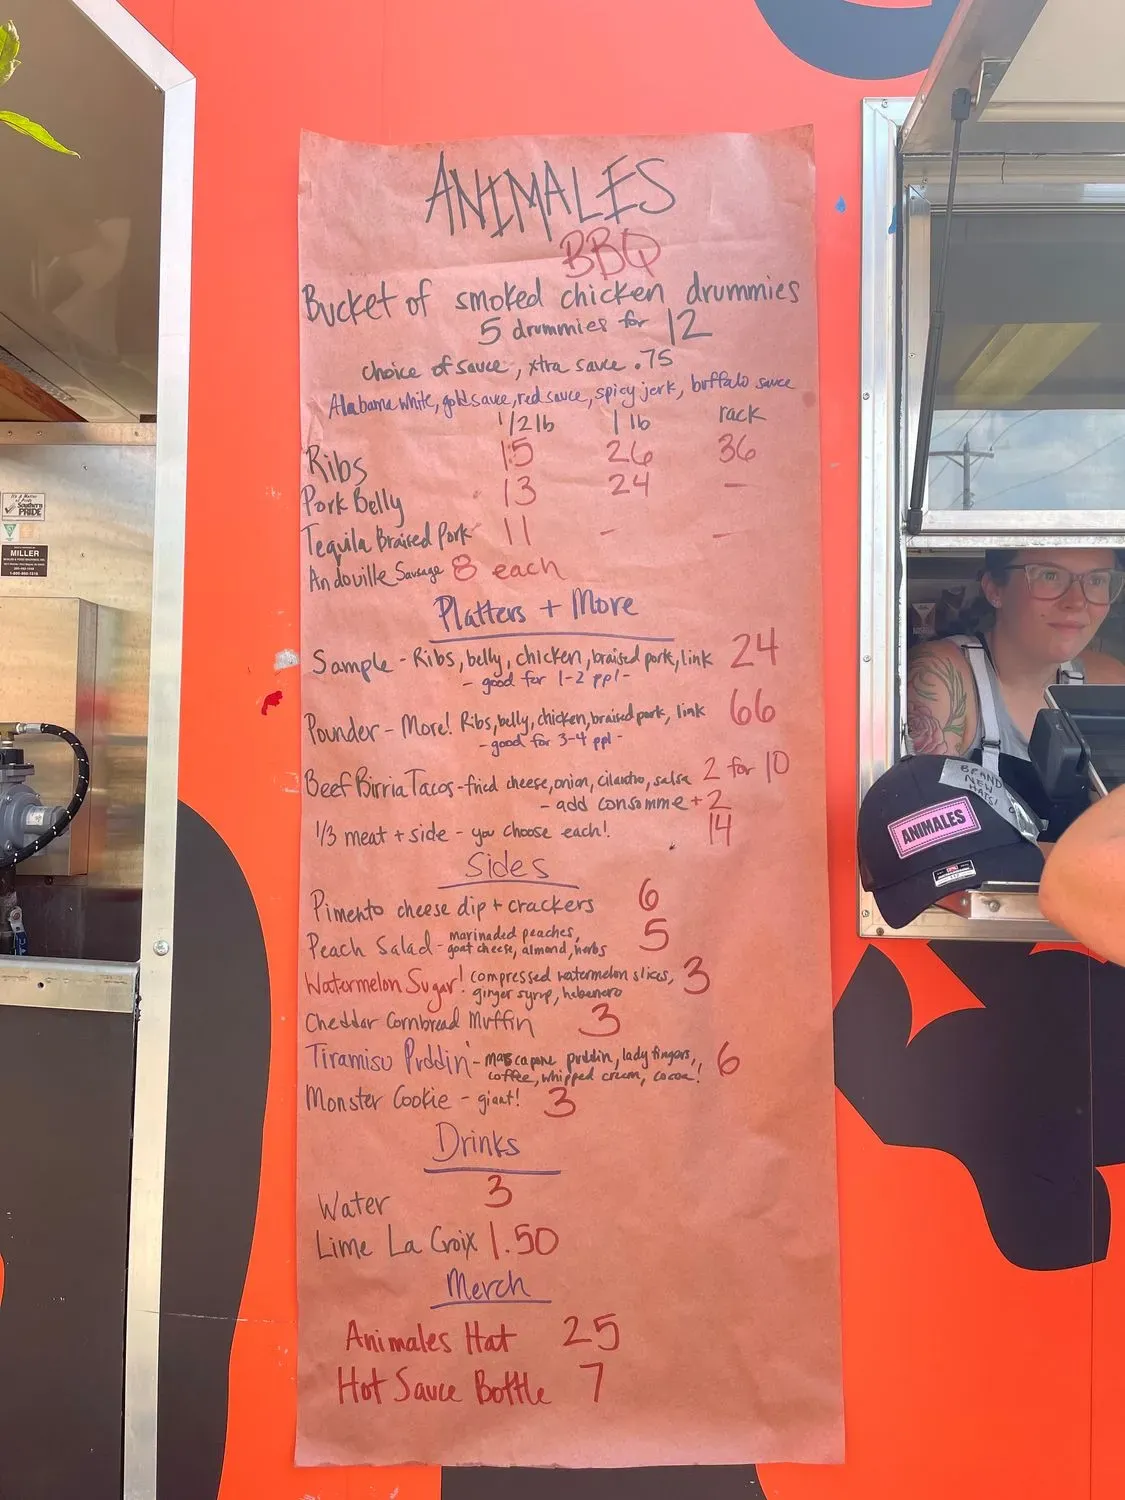 ANIMALES
BBQ
Bucket of smoked chicken drummies
5 drummies for 12
choice of sauce, xtra sauce .75
Alabama white, gold sauce, red sauce, spicy jerk, buffalo sauce
1/2 lb 1 lb rack
Ribs 15 26 36
Pork Belly 13 24 -
Tequila Braised Pork 11 - -
Andouille Sausage 8 each
Platters + More
Sample - Ribs, belly, chicken, braised pork, link 24
- good for 1-2 ppl -
Pounder - More! Ribs, belly, chicken, braised pork, link 66
- good for 3-4 ppl -
Beef Birria Tacos - fried cheese, onion, cilantro, salsa 2 for 10
- add consomme + 2
1/3 meat + side - you choose each! 14
Sides
Pimento cheese dip + crackers 6
Peach Salad - marinaded peaches, 5
goat cheese, almond, herbs
Watermelon Sugar! compressed watermelon slices, 3
ginger syrup, habenero
Cheddar Cornbread Muffin 3
Tiramisu Puddin' - mascapone puddin, lady fingers, 6
coffee, whipped cream, cocoa!
Monster Cookie - giant! 3
Drinks
Water 3
Lime La Croix 1.50
Merch
Animales Hat 25
Hot Sauce Bottle 7
BRAND
NEW
HATS!
ANIMALES
It's A Matter
of Pride
Southern
PRIDE
MILLER